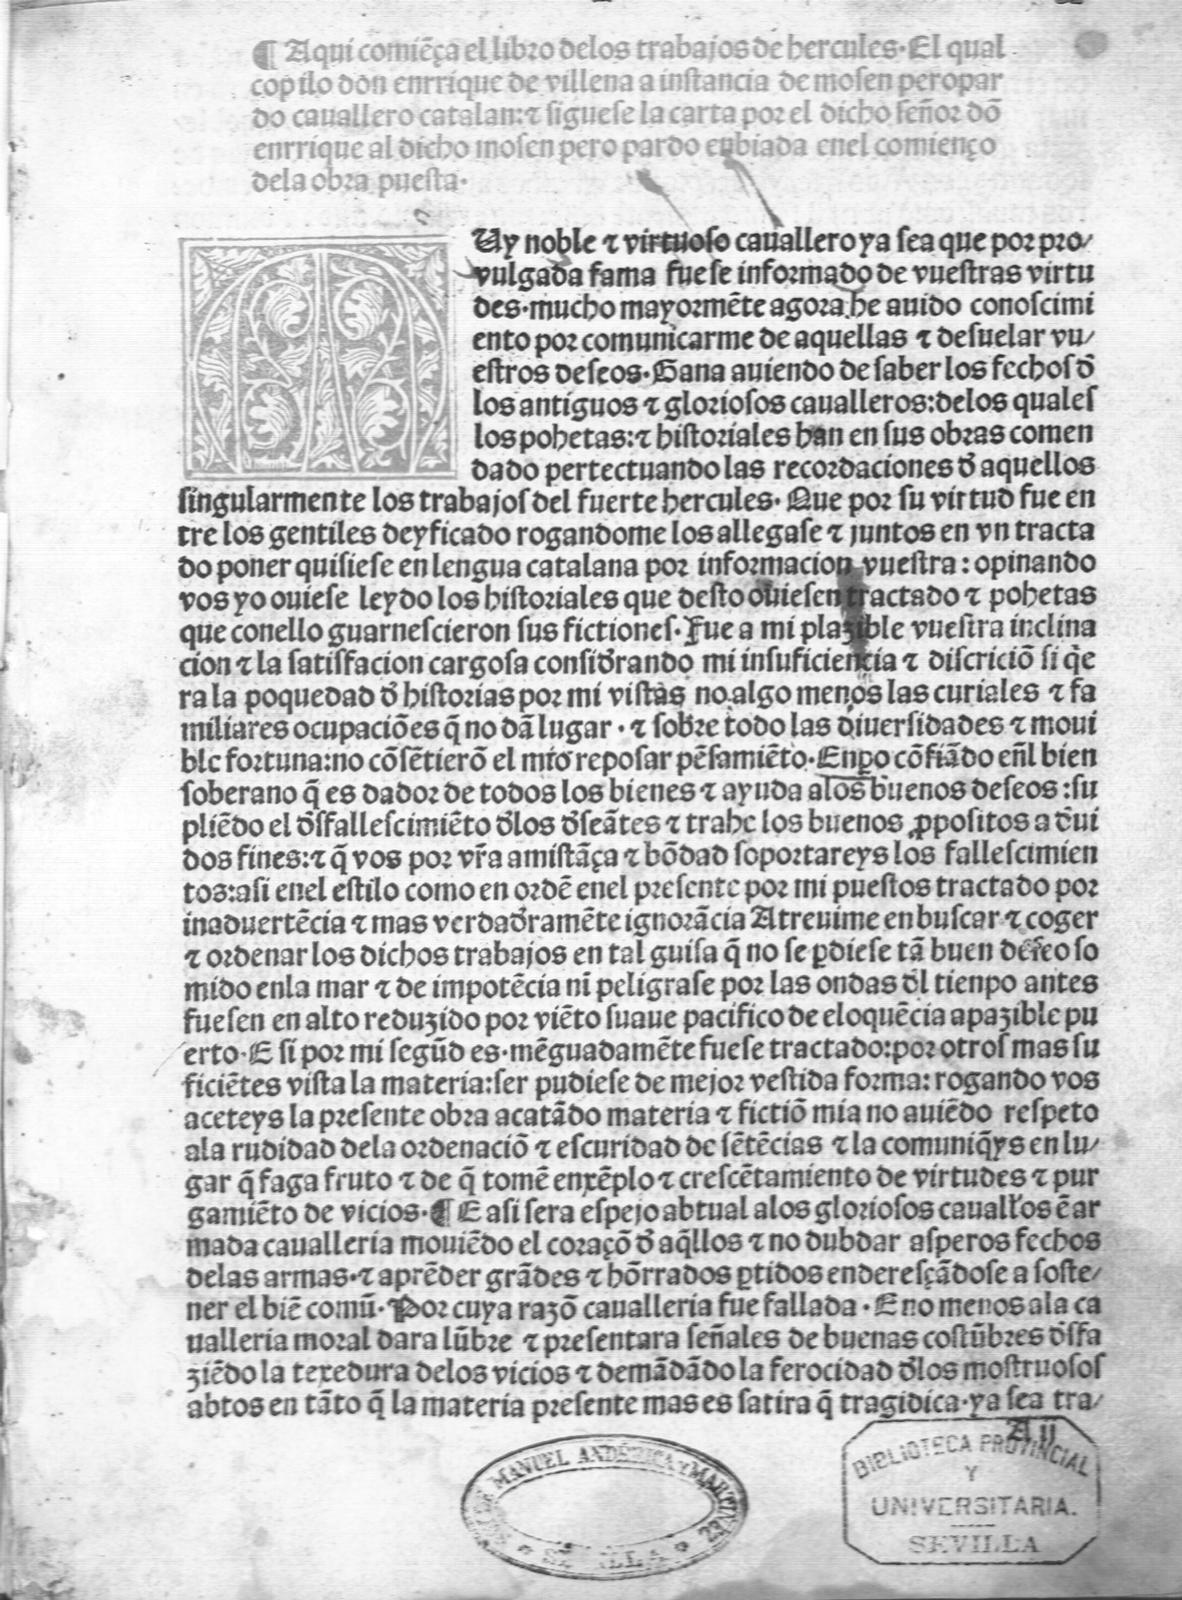 ¶ Aqui comiẽça el libro delos trabajos de hercules·El qual
copilo don enrrique de villena a instancia de mosen peropar
do cauallero catalan:⁊ siguese la carta por el dicho señor dõ
enrrique al dicho mosen pero pardo enbiada enel comienço
dela obra puesta·
MUy noble ⁊ virtuoso cauallero ya sea que por pro/
vulgada fama fuese informado de vuestras virtu
des·mucho mayormẽte agora he auido conoscimi
ento por comunicarme de aquellas ⁊ desuelar vu/
estros deseos·Gana auiendo de saber los fechos đ
los antiguos ⁊ gloriosos caualleros:delos quales
los pohetas:⁊ historiales han en sus obras comen
dado pertectuando las recordaciones đ aquellos
singularmente los trabajos del fuerte hercules· Que por su virtud fue en
tre los gentiles deyficado rogandome los allegase ⁊ juntos en vn tracta
do poner quisiese en lengua catalana por informacion vuestra: opinando
vos yo ouiese leydo los historiales que desto ouiesen tractado ⁊ pohetas
que conello guarnescieron sus fictiones·Fue a mi plazible vuestra inclina
cion ⁊ la satisfacion cargosa considrando mi insuficiencia ⁊ discriciõ si q̃e
ra la poquedad đ historias por mi vistas no algo menos las curiales ⁊ fa
miliares ocupaciões q̃ no dã lugar · ⁊ sobre todo las diuersidades ⁊ moui
ble fortuna:no cõsẽtierõ el mio reposar pẽsamiẽto·Enpo cõfiãdo eñl bien
soberano q̃ es dador de todos los bienes ⁊ ayuda alos buenos deseos :su
pliẽdo el đsfallescimiẽto đlos đseãtes ⁊ trahe los buenos ꝓpositos a đui
dos fines:⁊ q̃ vos por vr̃a amistãça ⁊ bõdad soportareys los fallescimien
tos:asi enel estilo como en ordẽ enel presente por mi puestos tractado por
inaduertẽcia ⁊ mas verdadramẽte ignorãcia Atreuime en buscar ⁊ coger
⁊ ordenar los dichos trabajos en tal guisa q̃ no se ꝑdiese tã buen deseo so
mido enla mar ⁊ de impotẽcia ni peligrase por las ondas đl tienpo antes
fuesen en alto reduzido por viẽto suaue pacifico de eloquẽcia apazible pu
erto·E si por mi segũd es·mẽguadamẽte fuese tractado:por otros mas su
ficiẽtes vista la materia:ser pudiese de mejor vestida forma: rogando vos
aceteys la presente obra acatãdo materia ⁊ fictiõ mia no auiẽdo respeto
ala rudidad dela ordenaciõ ⁊ escuridad de sẽtẽcias ⁊ la comuniq̃ys en lu/
gar q̃ faga fruto ⁊ de q̃ tomẽ enxẽplo ⁊ crescẽtamiento de virtudes ⁊ pur
gamiẽto de vicios·¶ E asi sera espejo abtual alos gloriosos cauallos ẽ ar
mada caualleria mouiẽdo el coraçõ đ aq̃llos ⁊ no dubdar asperos fechos
delas armas·⁊ aprẽder grãdes ⁊ hõrrados ꝑtidos enderesçãdose a soste/
ner el biẽ comũ·Por cuya razõ caualleria fue fallada · E no menos ala ca
ualleria moral dara lũbre ⁊ presentara señales de buenas costũbres đsfa
ziẽdo la texedura delos vicios ⁊ demãdãdo la ferocidad đlos mostruosos
abtos en tãto q̃ la materia presente mas es satira q̃ tragidica·ya sea tra/
A ij
MANUEL ANDÉRICA Y MARTINEZ
SEVILLA
BIBLIOTECA PROVINCIAL
Y
UNIVERSITARIA.
SEVILLA